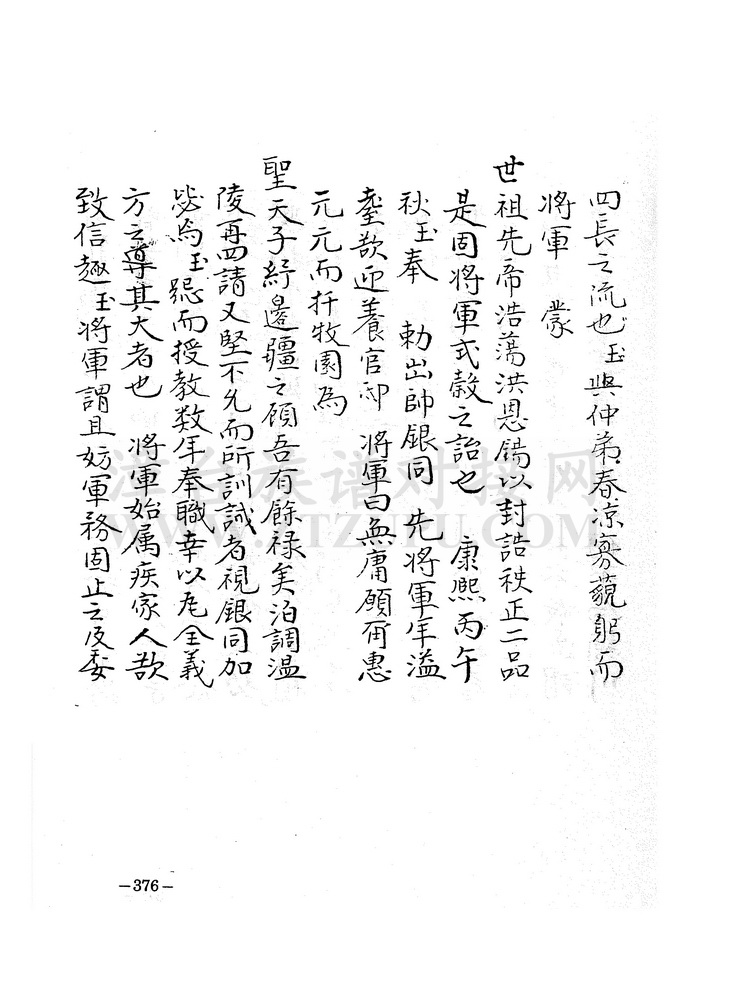 四長之流也玉與仲弟春凉寡藐躬而
将軍　蒙
世祖先帝浩蕩洪恩錫以封誥秩正二品
是固將軍式穀之詒也　康熙丙午
秋玉奉　勅出帥銀同　先將軍年溢
耋欲迎養官邸　將軍曰無庸願爾惠
元元而扞牧圉為
聖天子紓邊疆之顧吾有餘禄矣泊調温
陵再四請又堅不允而所訓誡者視銀同加
毖焉玉跽而授教数年奉職幸以克全義
方之導其大者也　將軍始属疾家人欲
致信趣玉將軍謂且妨軍務固止之及委
漳台族谱对接网
WWW.ZTZUPU.COM
—376—